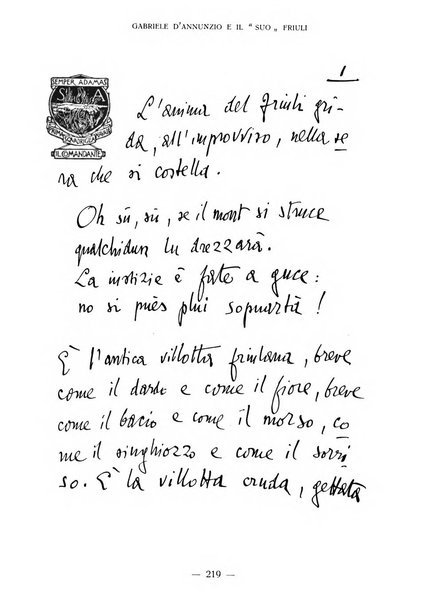 GABRIELE D'ANNUNZIO E IL " SUO „ FRIULI
1
SEMPER ADAMAS
S A
IL COMANDANTE
L'anima del Friuli gri-
da, all'improvviso, nella se
ra che si costella.
Oh sù, sù, se il mont si struce
qualchidun lu drezzarà.
La instizie è fate a guce:
no si pues plui sopuartà!
È l'antica villotta friulana, breve
come il dardo e come il fiore, breve
come il bacio e come il morso, co
me il singhiozzo e come il sorri
so. È la villotta cruda, gettata
— 219 —